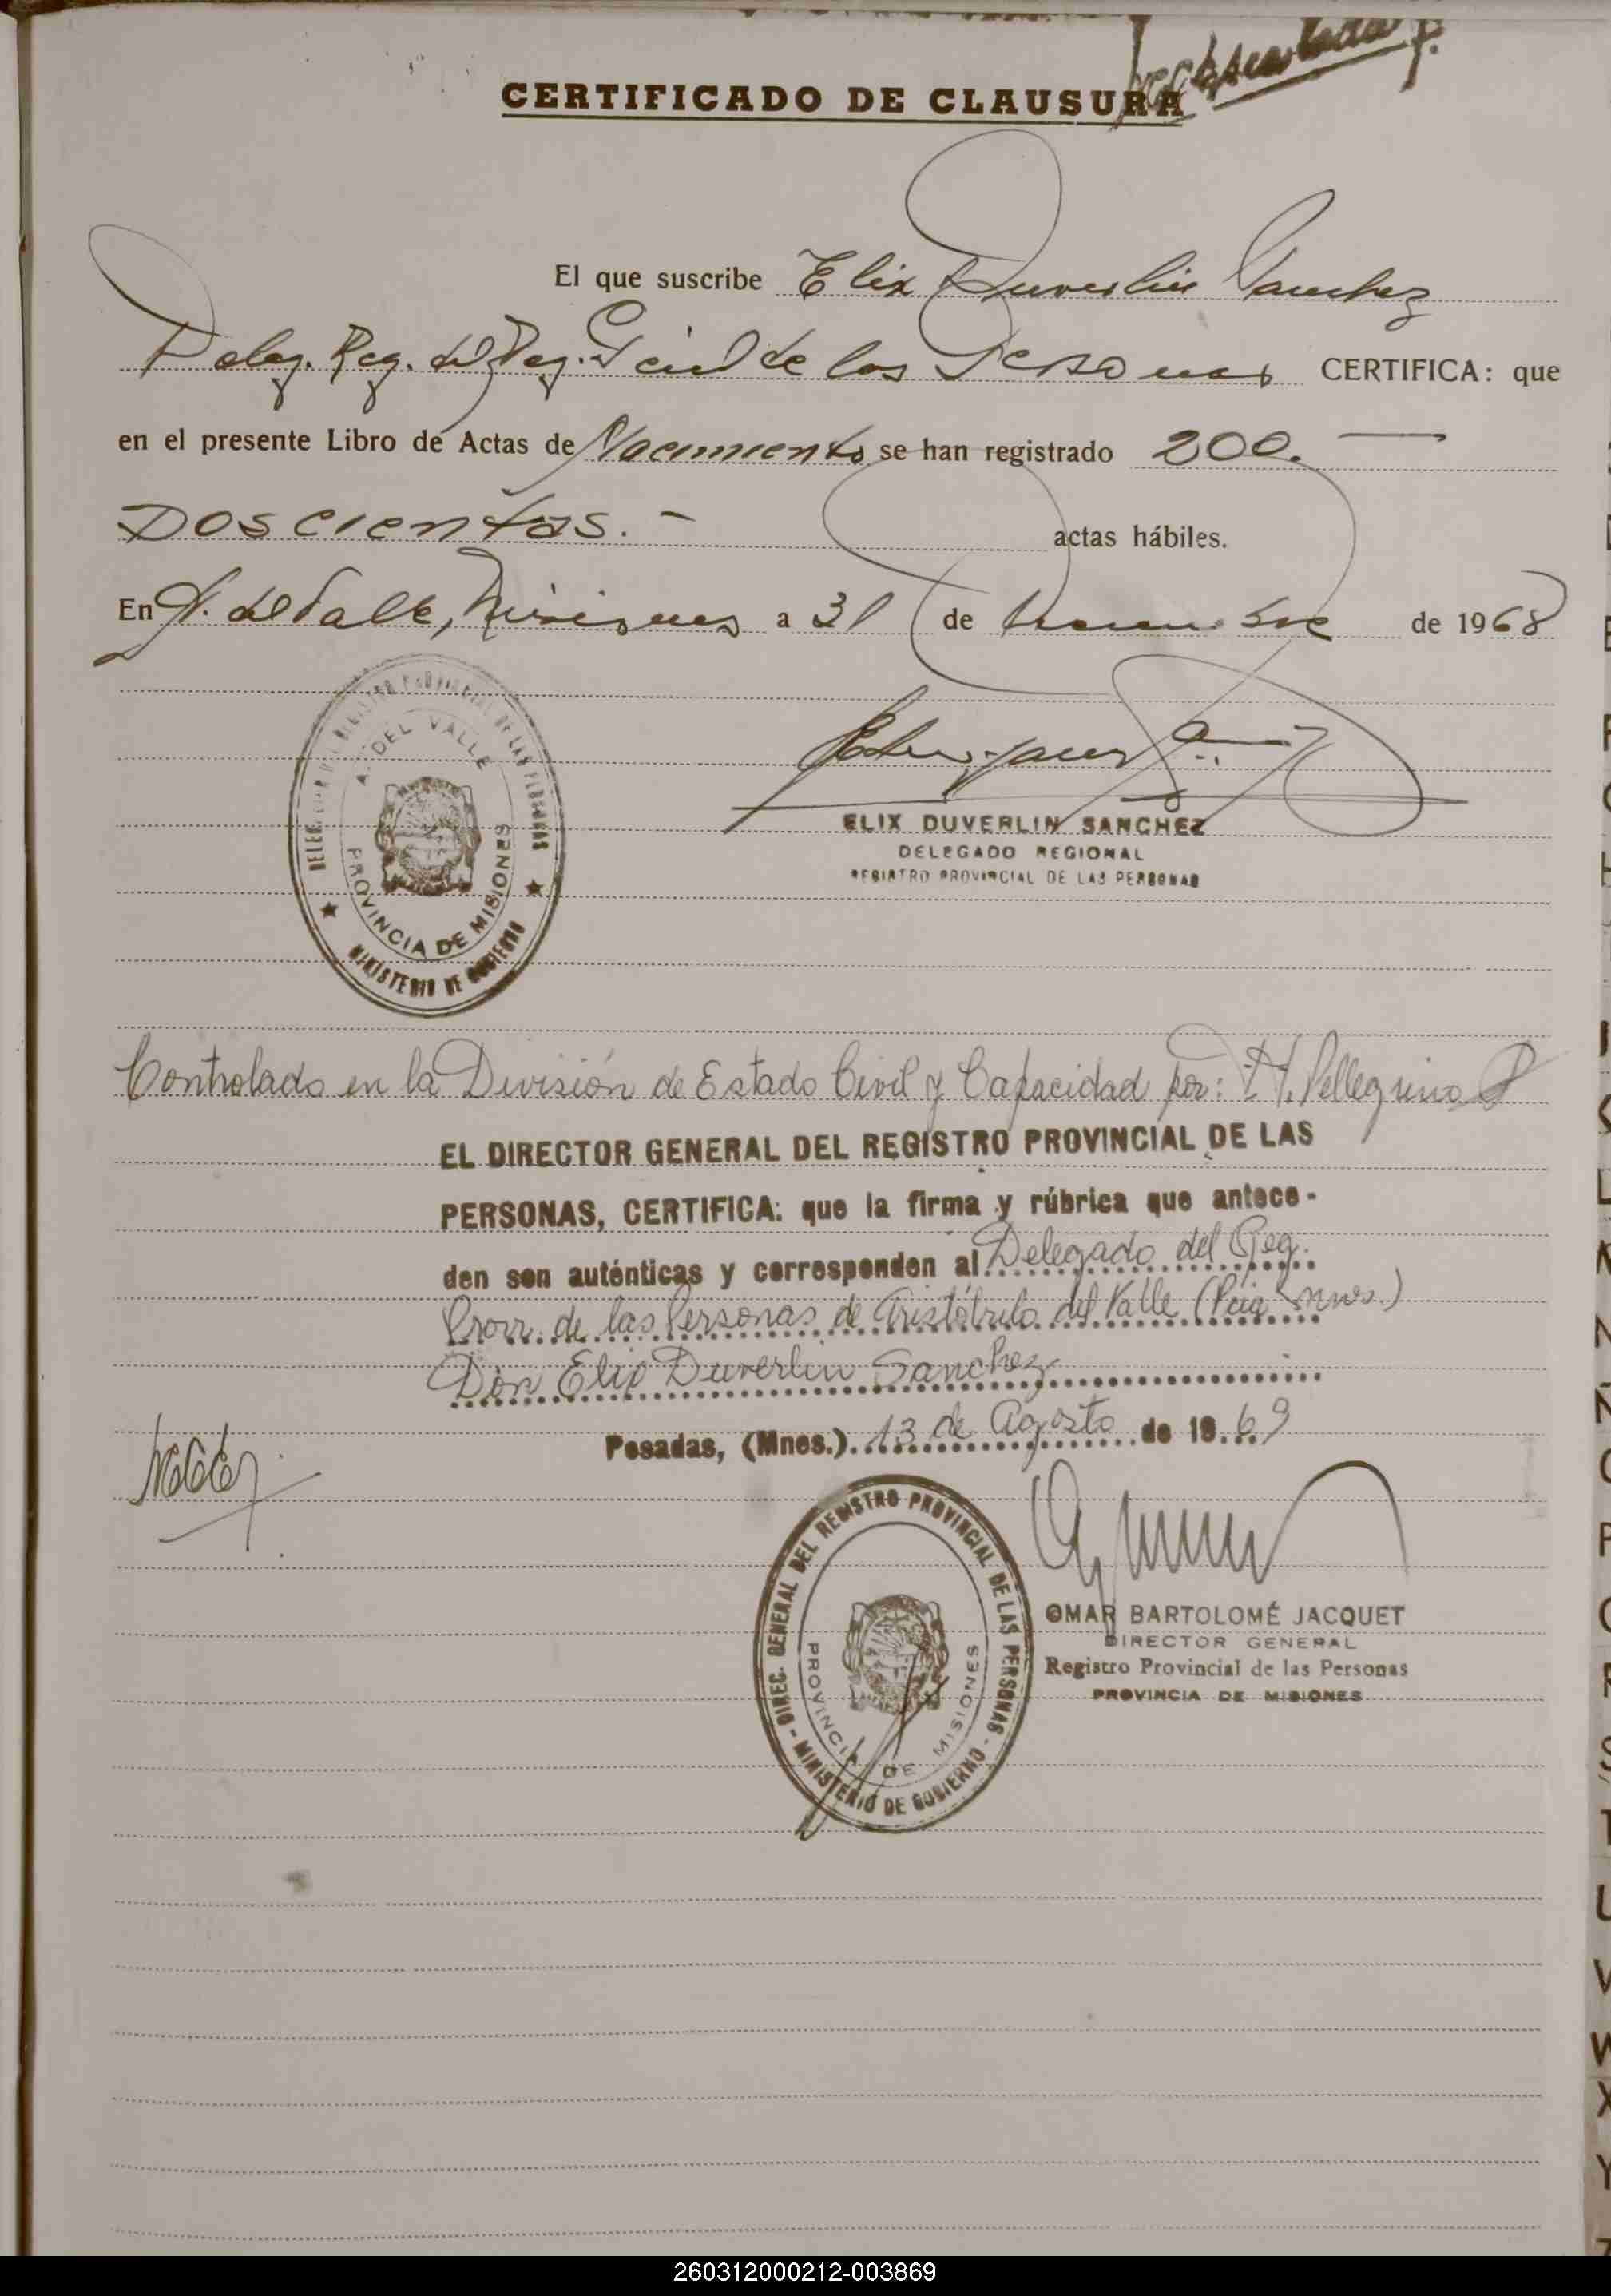 CERTIFICADO DE CLAUSURA
El que suscribe Elix Duverlin Sanchez
Deleg. Reg. del de las Personas CERTIFICA: que
en el presente Libro de Actas de Nacimiento se han registrado 200.
Doscientas. -
actas hábiles.
En A. del Valle, Misiones a 31 de de 1968
A. DEL VALLE
PROVINCIA DE MISIONES
MINISTERIO DE GOBIERNO
ELIX DUVERLIN SANCHEZ
DELEGADO REGIONAL
REGISTRO PROVINCIAL DE LAS PERSONAS
Controlado en la División de Estado Civil y Capacidad por: H. Pellegrino
EL DIRECTOR GENERAL DEL REGISTRO PROVINCIAL DE LAS
PERSONAS, CERTIFICA: que la firma y rúbrica que antece-
den son auténticas y corresponden al Delegado del Reg.
Prov. de las Personas de Aristóbulo del Valle (Pcia Mnes.)
Don Elix Duverlin Sanchez
Posadas, (Mnes.) 13 de Agosto de 19.69
DIREC. GENERAL DEL REGISTRO PROVINCIAL DE LAS PERSONAS - MINISTERIO DE GOBIERNO -
PROVINCIA DE MISIONES
OMAR BARTOLOMÉ JACQUET
DIRECTOR GENERAL
Registro Provincial de las Personas
PROVINCIA DE MISIONES
260312000212-003869